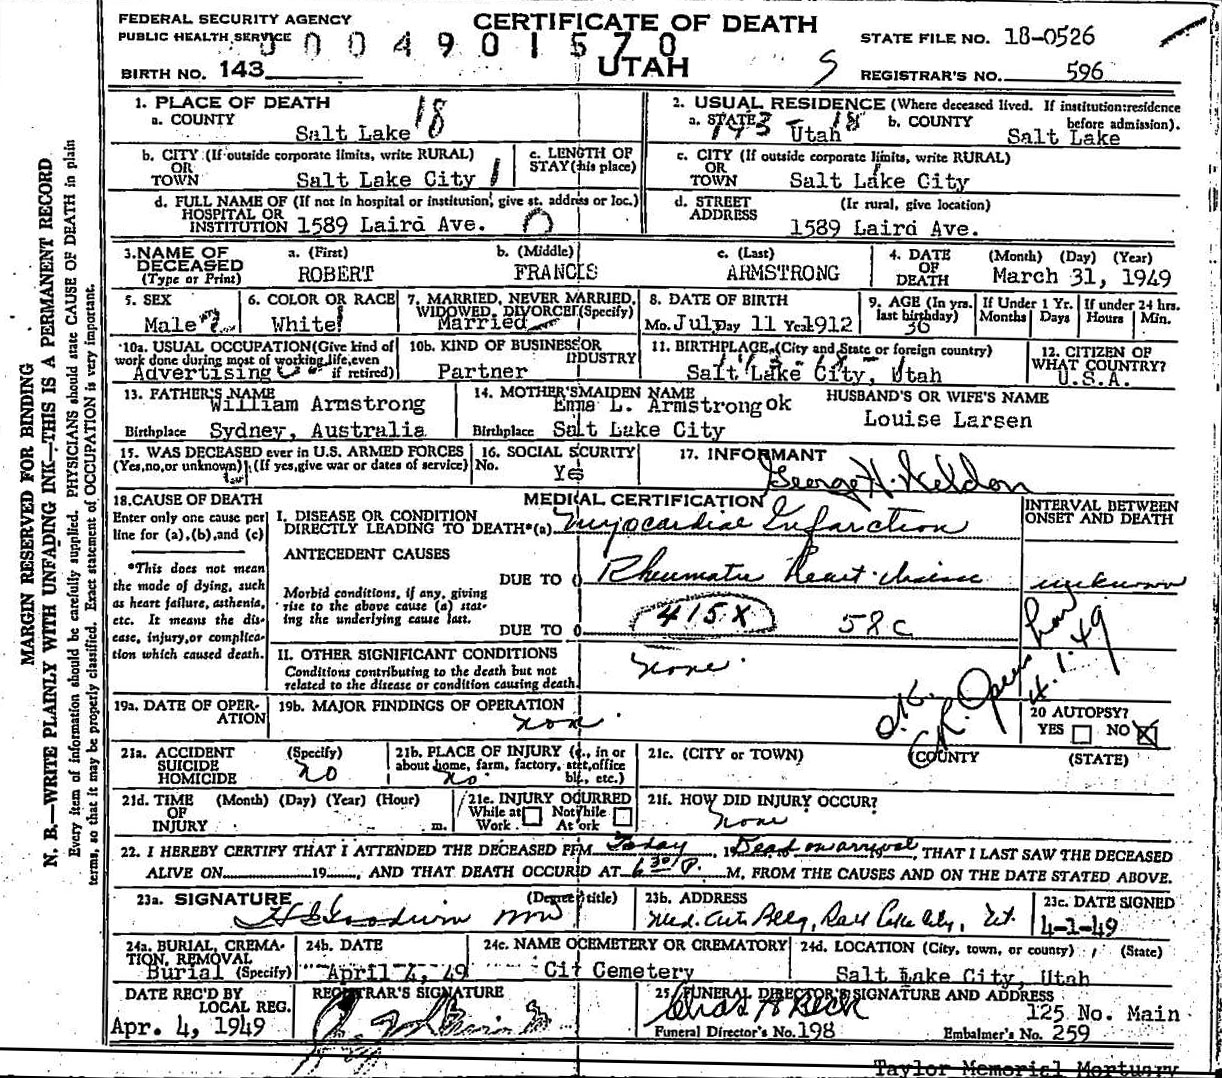 FEDERAL SECURITY AGENCY
PUBLIC HEALTH SERVICE
0004901570
CERTIFICATE OF DEATH
UTAH
STATE FILE NO. 18-0526
BIRTH NO. 143
REGISTRAR'S NO. 596
MARGIN RESERVED FOR BINDING
N. B.—WRITE PLAINLY WITH UNFADING INK—THIS IS A PERMANENT RECORD
Every item of information should be carefully supplied. PHYSICIANS should state CAUSE OF DEATH in plain
terms, so that it may be properly classified. Exact statement of OCCUPATION is very important.
1. PLACE OF DEATH
a. COUNTY
Salt Lake 18
2. USUAL RESIDENCE (Where deceased lived. If institution:residence
before admission).
a. STATE Utah 18
b. COUNTY Salt Lake
b. CITY (If outside corporate limits, write RURAL)
OR
TOWN Salt Lake City
c. LENGTH OF
STAY (in this place)
c. CITY (If outside corporate limits, write RURAL)
OR
TOWN Salt Lake City
d. FULL NAME OF (If not in hospital or institution, give st. address or loc.)
HOSPITAL OR
INSTITUTION 1589 Laird Ave.
d. STREET (Ir rural, give location)
ADDRESS 1589 Laird Ave.
3. NAME OF
DECEASED
(Type or Print)
a. (First) ROBERT
b. (Middle) FRANCIS
c. (Last) ARMSTRONG
4. DATE
OF
DEATH
(Month) (Day) (Year)
March 31, 1949
5. SEX
Male
6. COLOR OR RACE
White
7. MARRIED, NEVER MARRIED,
WIDOWED, DIVORCED (Specify)
Married
8. DATE OF BIRTH
Mo. July Day 11 Year 1912
9. AGE (In yrs.
last birthday)
36
If Under 1 Yr.
Months Days
If under 24 hrs.
Hours Min.
10a. USUAL OCCUPATION (Give kind of
work done during most of working life, even
if retired)
Advertising
10b. KIND OF BUSINESS OR
INDUSTRY
Partner
11. BIRTHPLACE (City and State or foreign country)
Salt Lake City, Utah
12. CITIZEN OF
WHAT COUNTRY?
U.S.A.
13. FATHER'S NAME
William Armstrong
Birthplace Sydney, Australia
14. MOTHER'S MAIDEN NAME
Emma L. Armstrong ok
Birthplace Salt Lake City
HUSBAND'S OR WIFE'S NAME
Louise Larsen
15. WAS DECEASED ever in U.S. ARMED FORCES
(Yes, no, or unknown) (If yes, give war or dates of service)
16. SOCIAL SCURITY
No. Yes
17. INFORMANT
George H.
18. CAUSE OF DEATH
Enter only one cause per
line for (a),(b),and (c)
*This does not mean
the mode of dying, such
as heart failure, asthenia,
etc. It means the dis-
ease, injury, or complica-
tion which caused death.
MEDICAL CERTIFICATION
INTERVAL BETWEEN
ONSET AND DEATH
I. DISEASE OR CONDITION
DIRECTLY LEADING TO DEATH*(a) Myocardial Infarction
ANTECEDENT CAUSES
DUE TO Rheumatic Heart disease unknown
Morbid conditions, if any, giving
rise to the above cause (a) stat-
ing the underlying cause last.
DUE TO 415X 58c
II. OTHER SIGNIFICANT CONDITIONS
Conditions contributing to the death but not
related to the disease or condition causing death.
none.
4.1.49
19a. DATE OF OPER-
ATION
19b. MAJOR FINDINGS OF OPERATION
none
20 AUTOPSY?
YES NO X
21a. ACCIDENT
SUICIDE
HOMICIDE
(Specify)
no
21b. PLACE OF INJURY (e., in or
about home, farm, factory, street, office
bl., etc.)
no.
21c. (CITY or TOWN) (COUNTY) (STATE)
21d. TIME (Month) (Day) (Year) (Hour)
OF
INJURY m.
21e. INJURY OCURRED
While at Work
Not While At ork
21f. HOW DID INJURY OCCUR?
none
22. I HEREBY CERTIFY THAT I ATTENDED THE DECEASED FROM Today, 19 Dead on arrival 19, THAT I LAST SAW THE DECEASED
ALIVE ON 19, AND THAT DEATH OCCURED AT 6:30 P. M, FROM THE CAUSES AND ON THE DATE STATED ABOVE.
23a. SIGNATURE (Degree or title)
H S Goodwin MD
23b. ADDRESS
Med. Arts Bldg, Salt Lake City, Ut.
23c. DATE SIGNED
4-1-49
24a. BURIAL, CREMA-
TION, REMOVAL
Burial (Specify)
24b. DATE
April 4, 49
24c. NAME OCEMETERY OR CREMATORY
Cit Cemetery
24d. LOCATION (City, town, or county) (State)
Salt Lake City, Utah
DATE REC'D BY
LOCAL REG.
Apr. 4, 1949
REGISTRAR'S SIGNATURE
25. FUNERAL DIRECTOR'S SIGNATURE AND ADDRESS
Chas A Beck
125 No. Main
Funeral Director's No. 198
Embalmer's No. 259
Taylor Memorial Mortuary